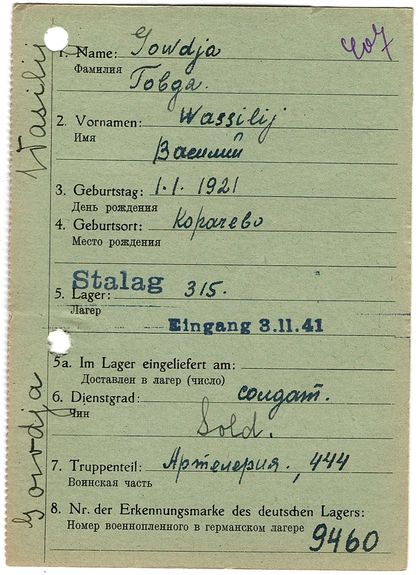 407
1. Name: Gowdja
Фамилия
Говда.
2. Vornamen: Wassilij
Имя
Василий
3. Geburtstag: 1.1.1921
День рождения
4. Geburtsort: Корачево
Место рождения
Stalag
5. Lager: 315.
Лагер
Eingang 3.11.41
5a. Im Lager eingeliefert am:
Доставлен в лагер (число)
6. Dienstgrad: солдат.
Чин
Sold.
7. Truppenteil: Артелерия., 444
Воинская часть
8. Nr. der Erkennungsmarke des deutschen Lagers:
Номер военнопленного в германском лагере
9460
Wasilij